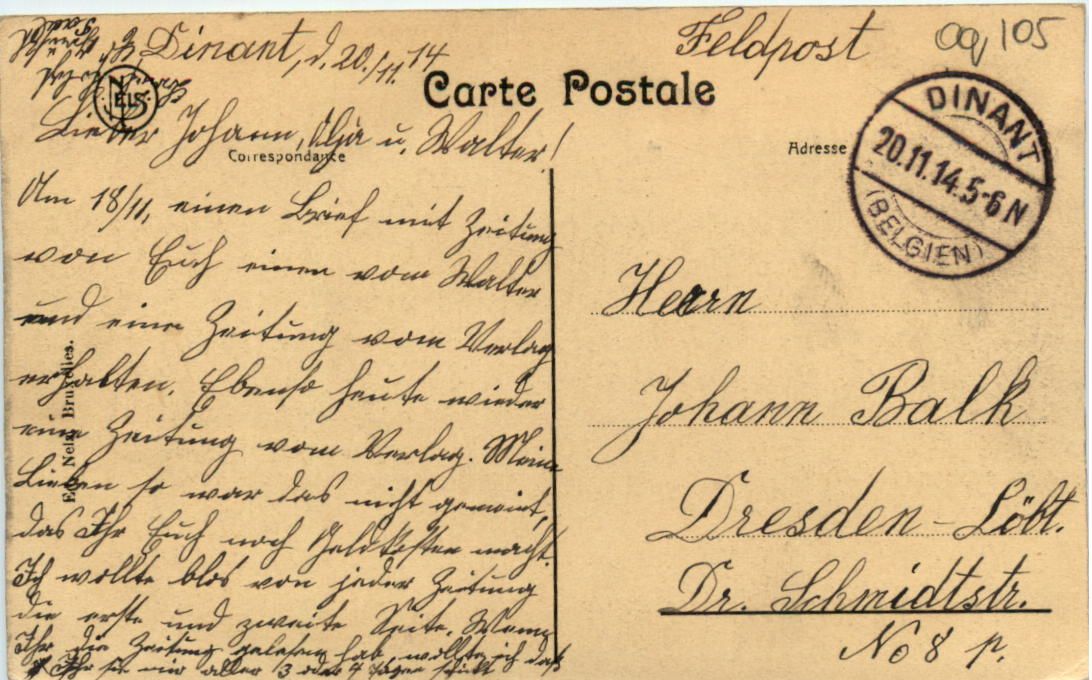 Dinant, d. 20./11. 14
Feldpost
105
Carte Postale
NELS
Lieber Johann, Olja u. Walter!
Correspondance
Adresse
DINANT
20.11.14.5-6 N
(BELGIEN)
Am 18/11, einen Brief mit Zeitung
von Euch einen vom Walter
und eine Zeitung vom Verlag
erhalten. Ebenso heute wieder
eine Zeitung vom Verlag. Meine
Lieben so war das nicht gemeint,
das Ihr Euch noch Geldkosten macht.
Ich wollte blos von jeder Zeitung
die erste und zweite Seite. Wenn
Ihr die Zeitung gelesen hab, wollte ich das
Ihr sie mir aller 3 oder 4 Tagen schickt
Ed. Nels, Bruxelles.
Herrn
Johann Balk
Dresden-Löbt.
Dr. Schmidtstr.
No 8 p.